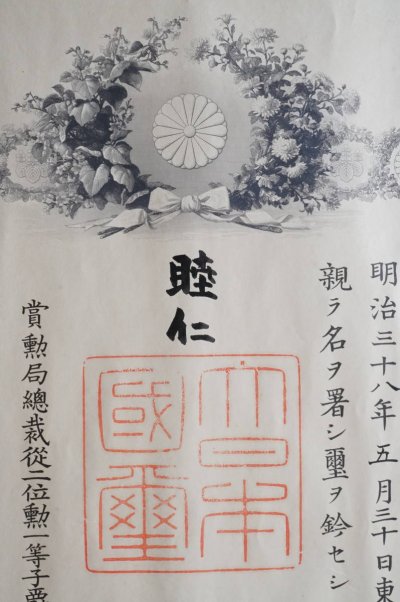 明治三十八年五月三十日東
親ラ名ヲ署シ璽ヲ鈐セシ
睦仁
大日本國璽
賞勲局總裁從二位勲一等子爵